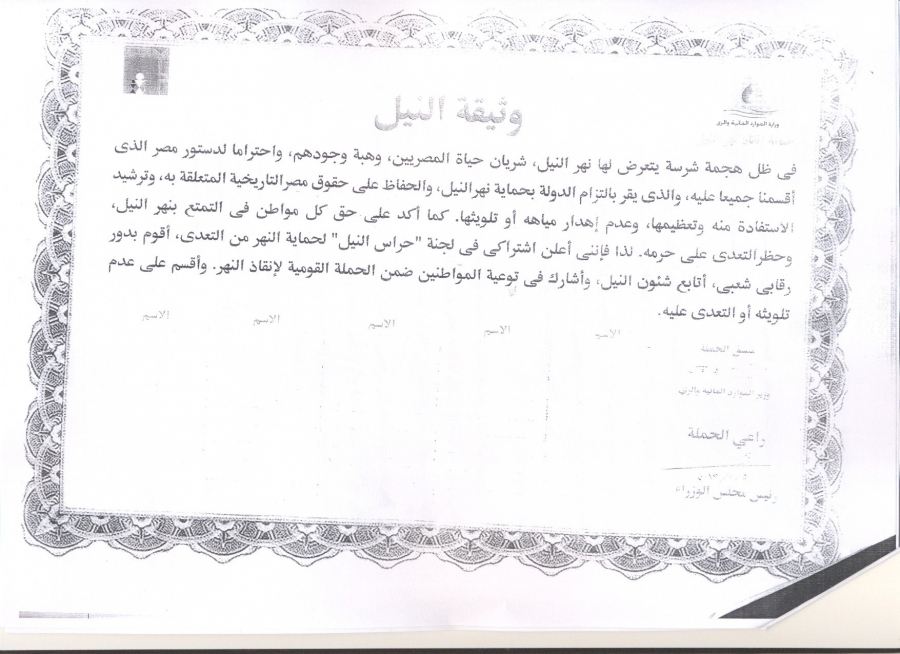 وثيقة النيل
وزارة الموارد المائية والري
فى ظل هجمة شرسة يتعرض لها نهر النيل، شريان حياة المصريين، وهبة وجودهم، واحتراما لدستور مصر الذى
أقسمنا جميعا عليه، والذى يقر بالتزام الدولة بحماية نهرالنيل، والحفاظ على حقوق مصرالتاريخية المتعلقة به، وترشيد
الاستفادة منه وتعظيمها، وعدم إهدار مياهه أو تلويثها. كما أكد على حق كل مواطن فى التمتع بنهر النيل،
وحظرالتعدى على حرمه. لذا فإننى أعلن اشتراكى فى لجنة "حراس النيل" لحماية النهر من التعدى، أقوم بدور
رقابى شعبى، أتابع شئون النيل، وأشارك فى توعية المواطنين ضمن الحملة القومية لإنقاذ النهر. وأقسم على عدم
تلويثه أو التعدى عليه.
الاسم الاسم الاسم الاسم الاسم
منسق الحملة
وزير الموارد المائية والري
راعي الحملة
رئيس مجلس الوزراء